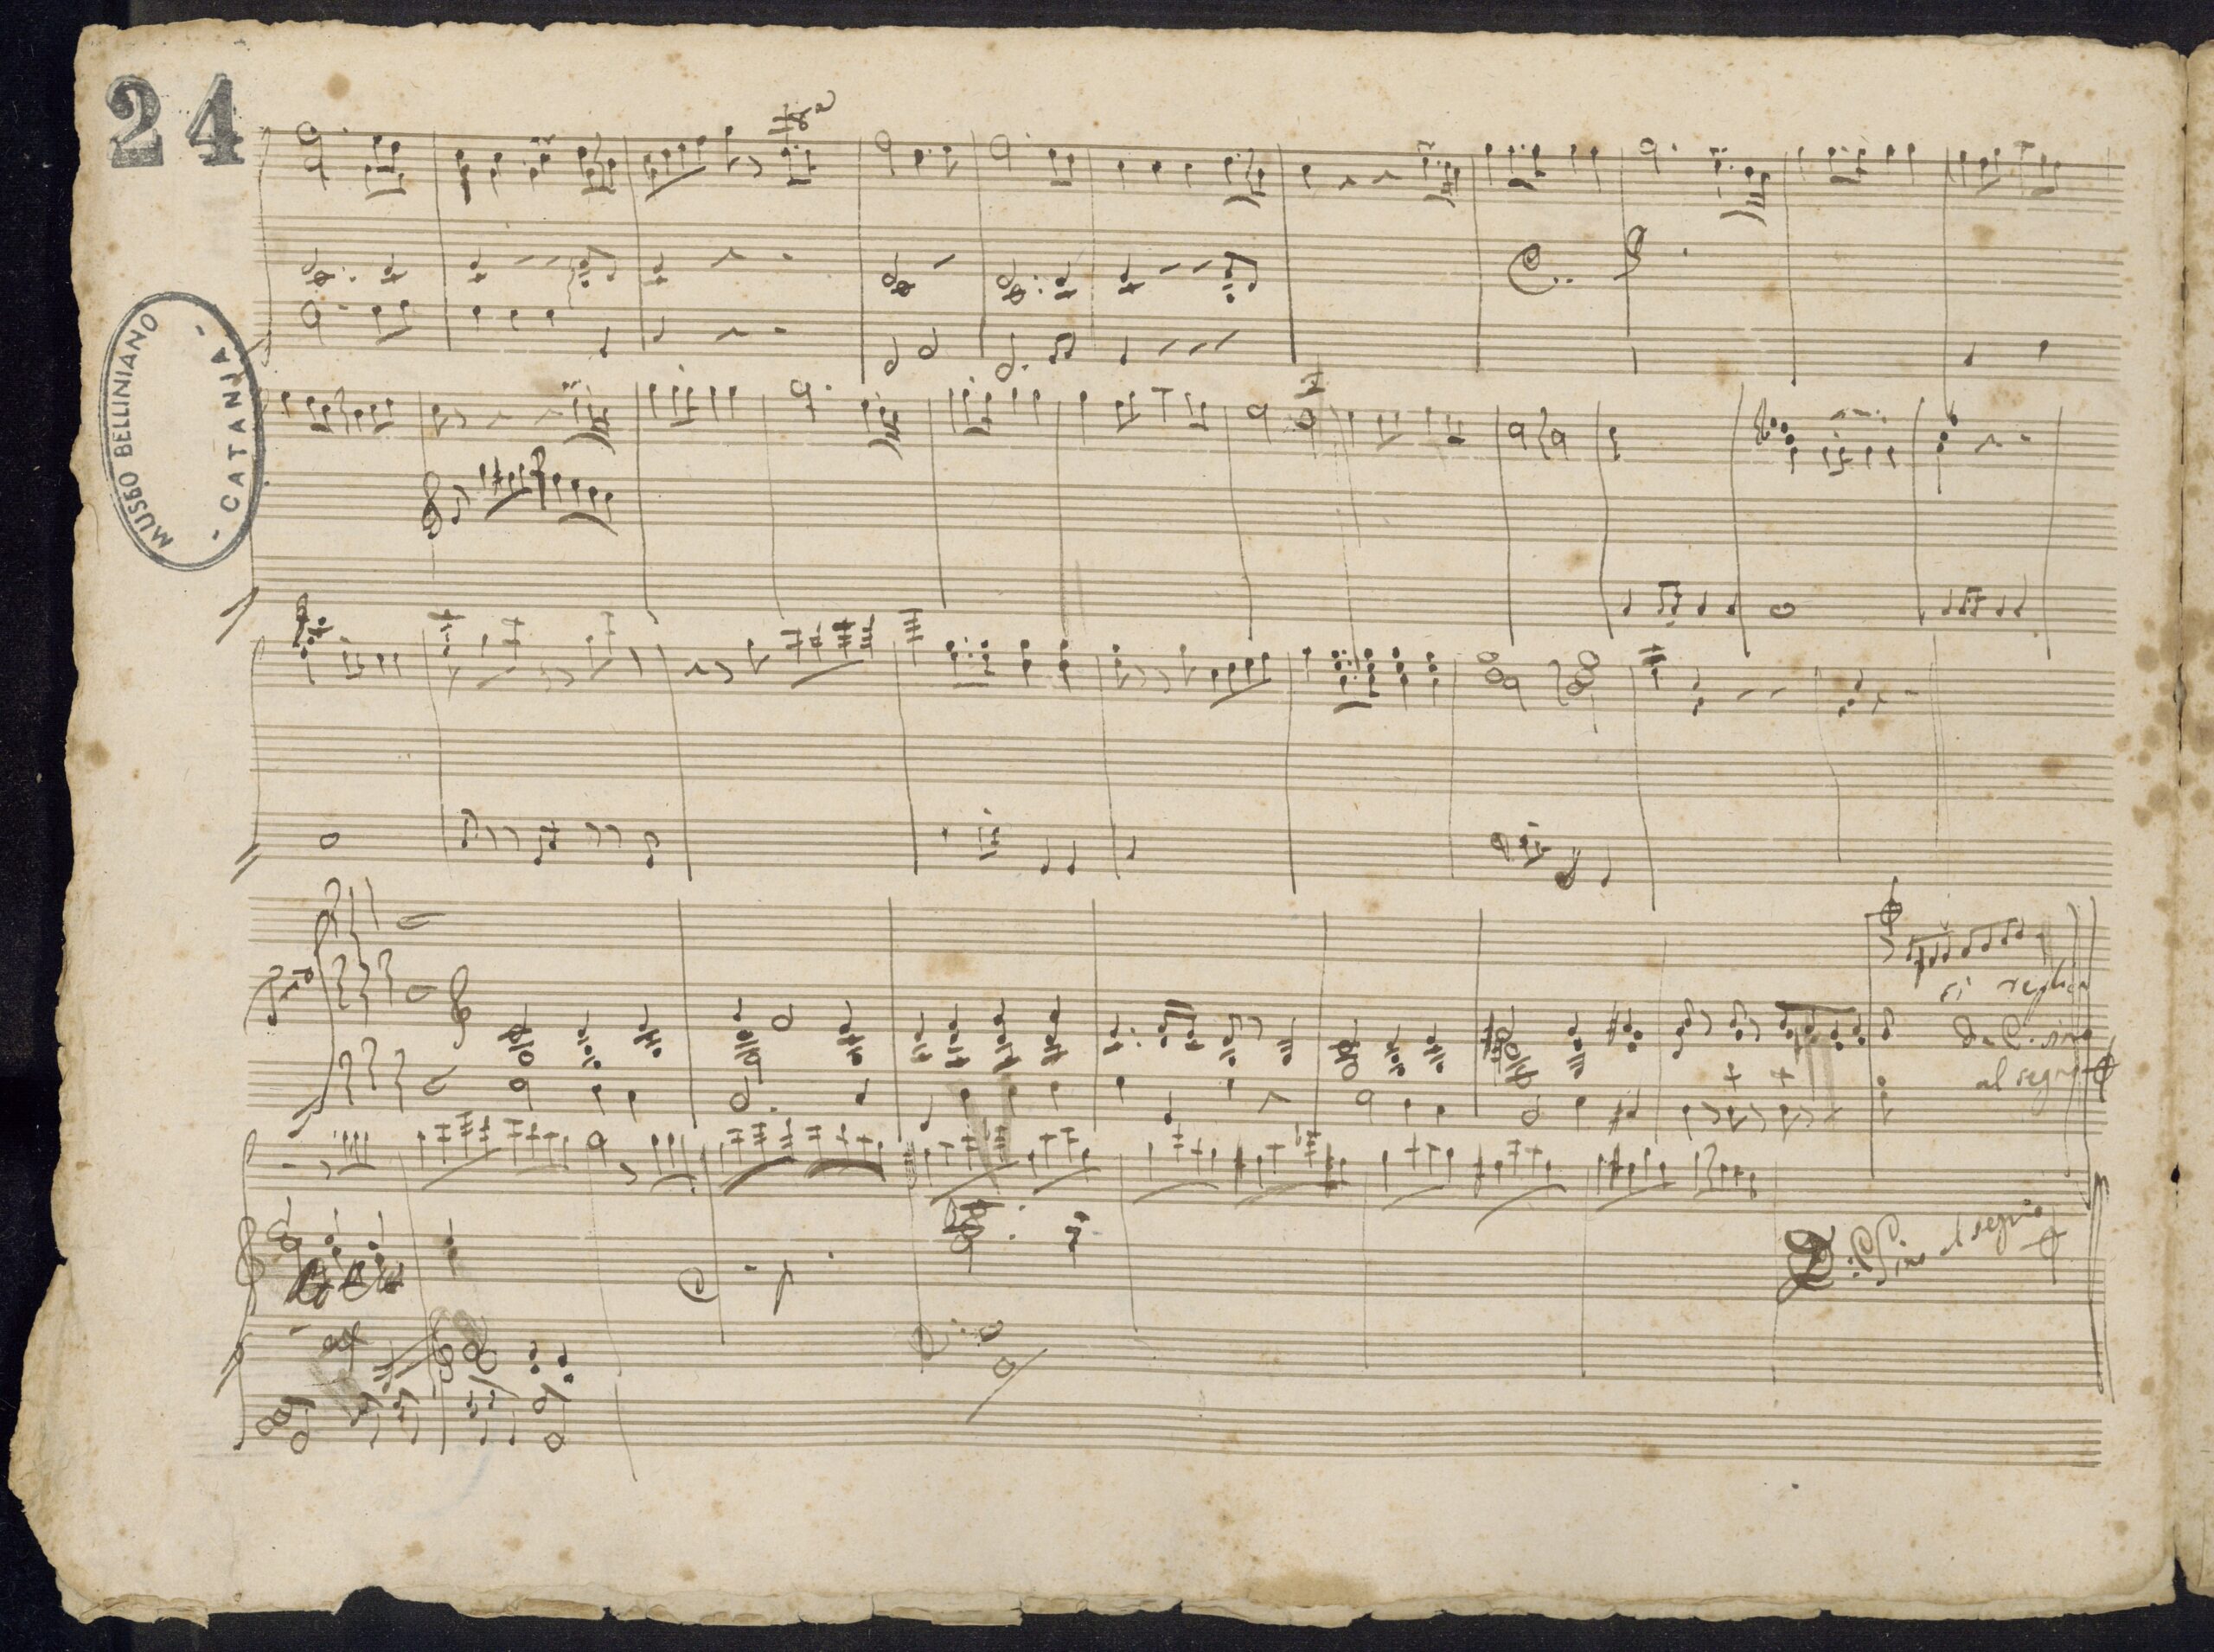 24
8a
MUSEO BELLINIANO
- CATANIA -
Trio
si replica
Da C. sino
al segno
D. C. Sino al segno